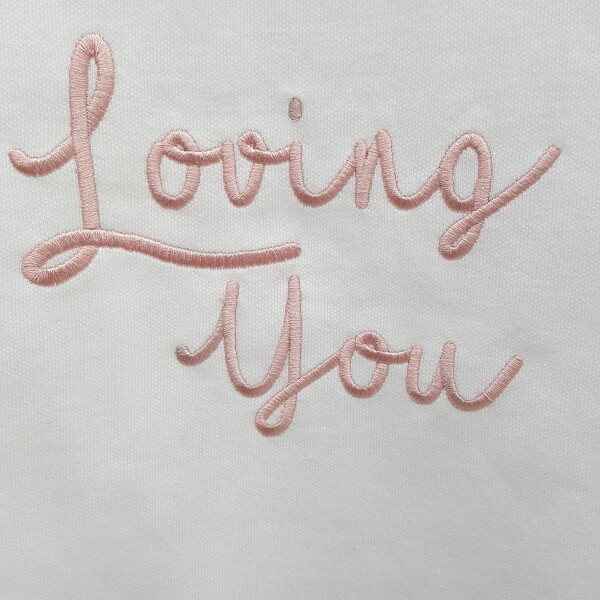 Loving
You